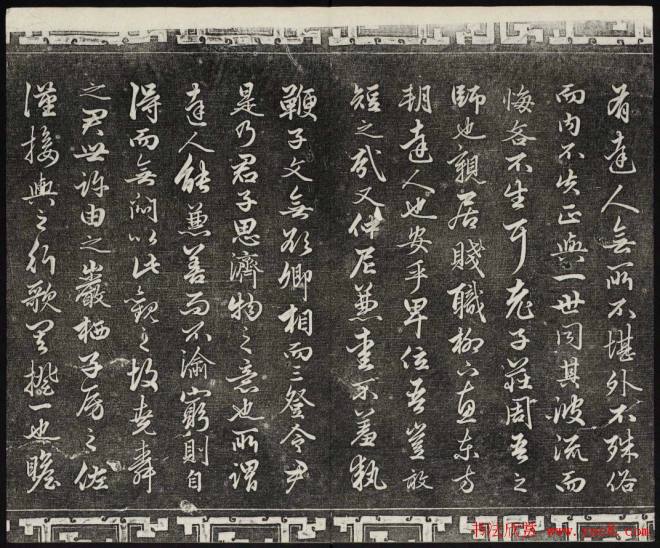 有達人無所不堪外不殊俗
而内不失正與一世同其波流而
悔吝不生耳老子莊周吾之
師也親居賤職柳下惠東方
朔達人也安乎卑位吾豈敢
短之哉又仲尼兼愛不羞執
鞭子文無欲卿相而三登令尹
是乃君子思濟物之意也所謂
達人能兼善而不渝窮則自
得而無悶以此觀之故堯舜
之君世許由之巖栖子房之佐
漢接輿之行歌其揆一也瞻
书法欣赏